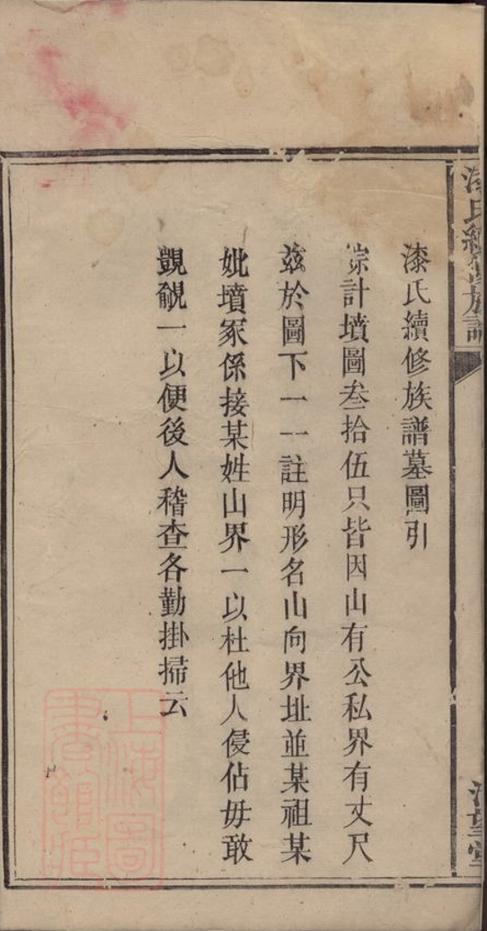 漆氏續修族譜
漆氏續修族譜墓圖引
綜計墳圖叁拾伍只皆因山有公私界有丈尺
茲於圖下一一註明形名山向界址並某祖某
妣墳冢係接某姓山界一以杜他人侵佔毋敢
覬覦一以便後人稽查各勤掛掃云
上海圖書館藏